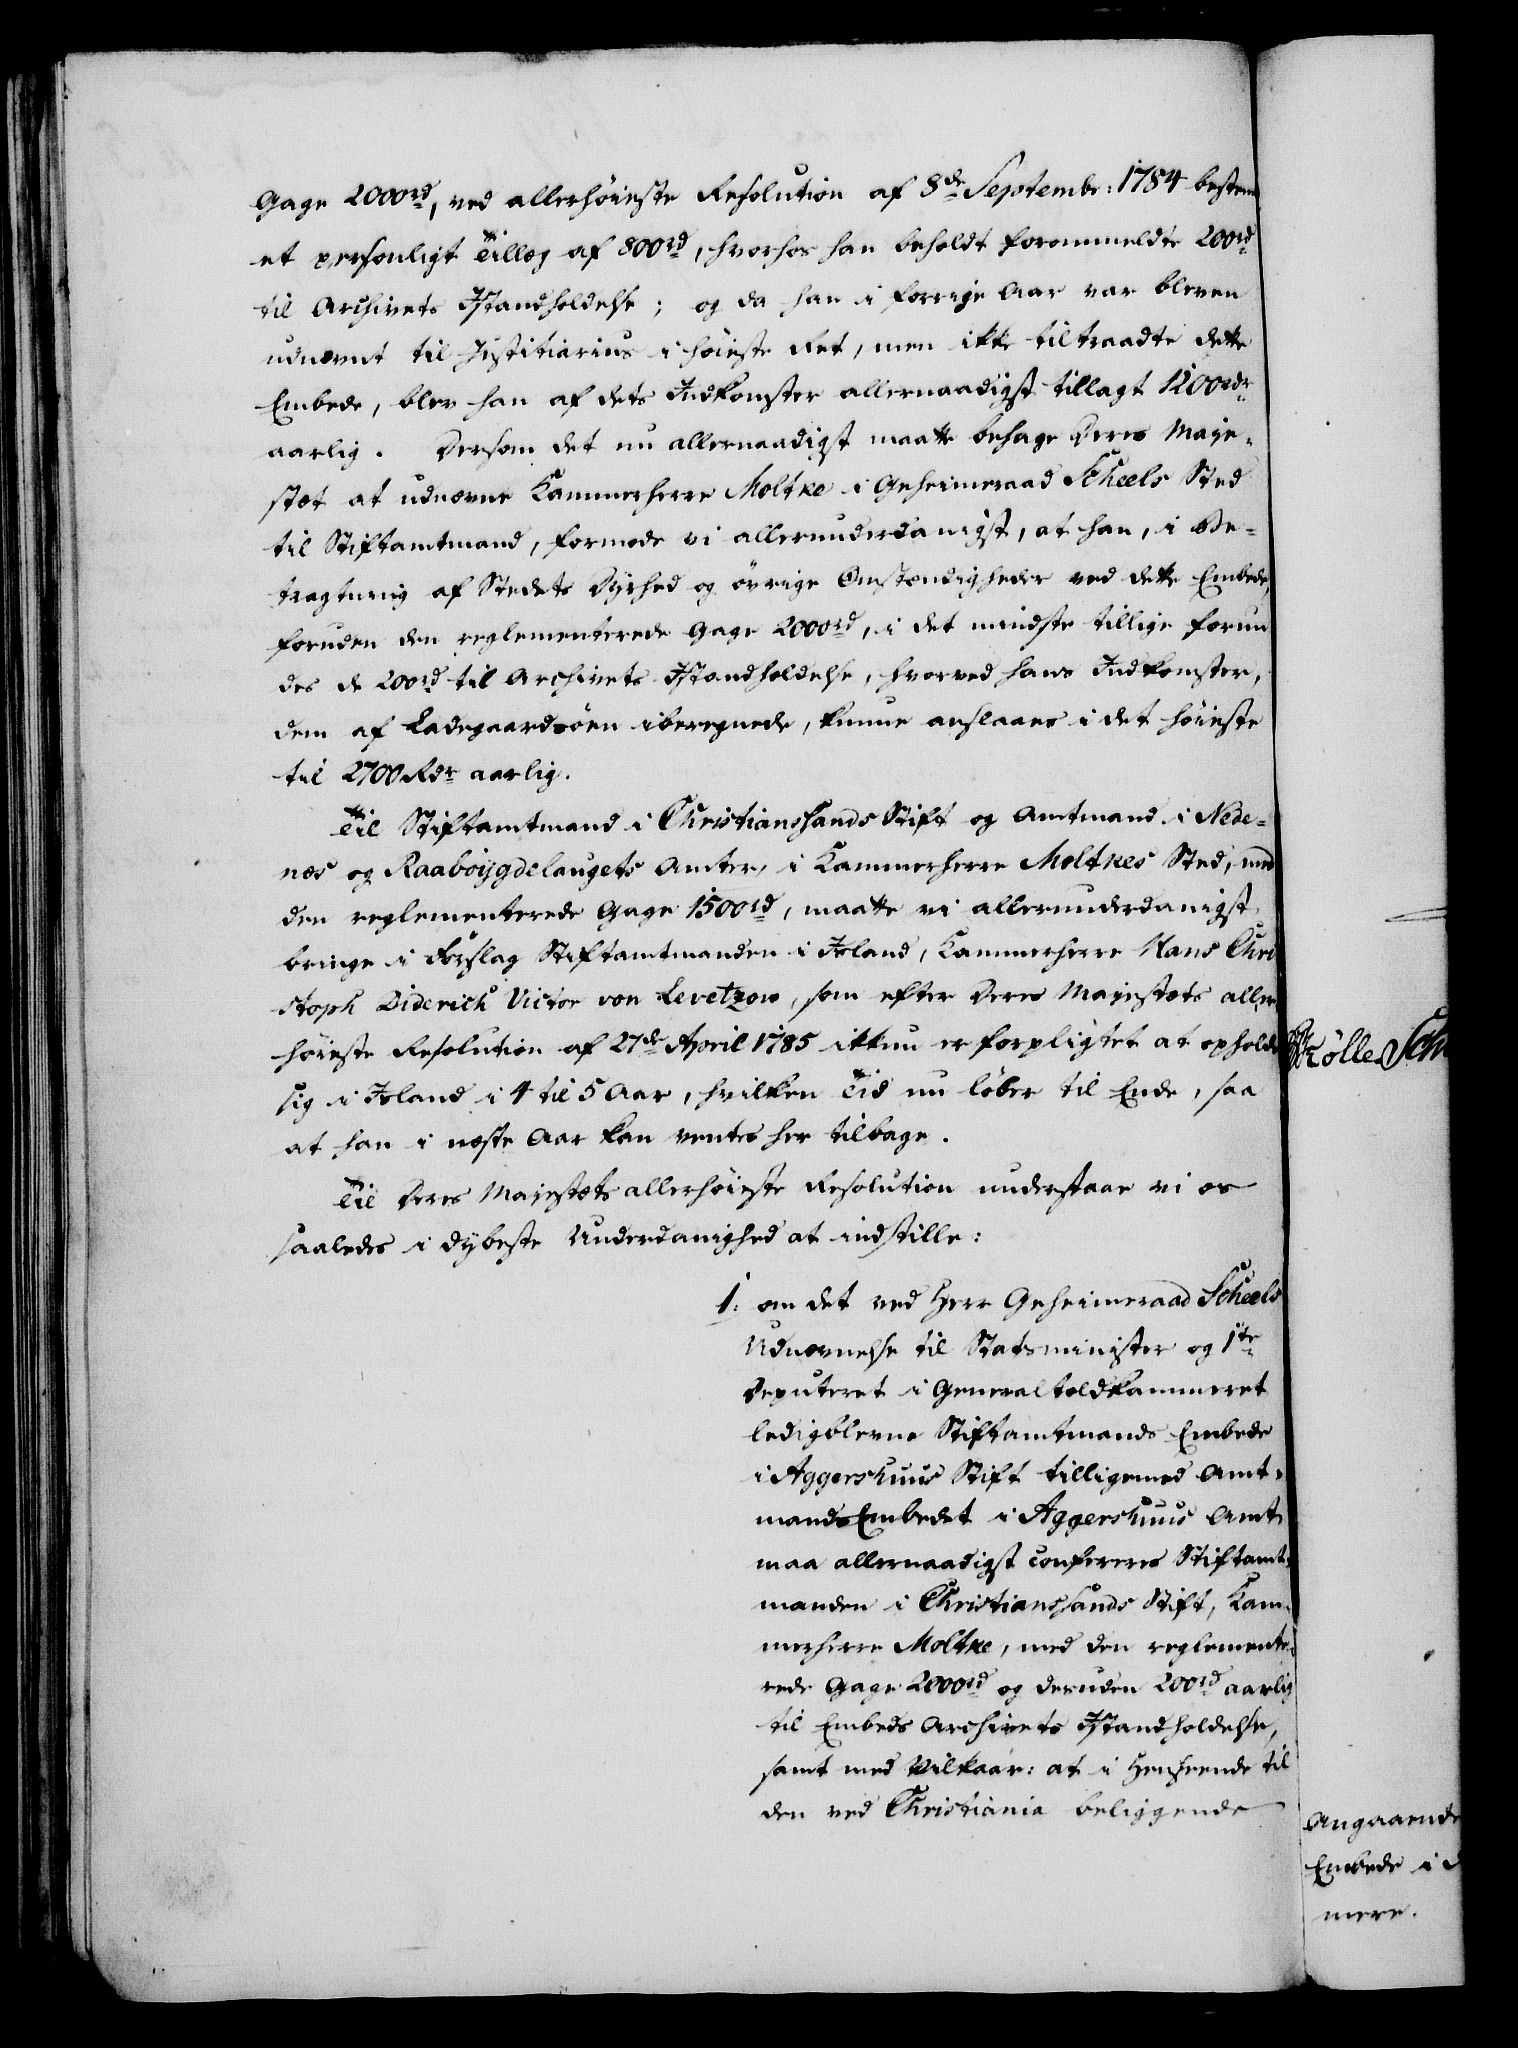 Gage 2000rd, ved allerhöieste Resolution af 8de Septembr: 1784 bestem
et personligt Tillæg af 800rd, hvorhos han beholdt forommeldte 200rd
til Archivets Istandholdelse; og da han i forrige Aar var bleven
udnævnt til Justitiarius i Höieste Ret, men ikke tiltraadte dette
Embede, blev han af dets Indkomster allernaadigst tillagt 1200rdr
aarlig. Dersom det nu allernaadigst maatte behage Deres Maje-
stæt at udnævne Kammerherre Moltke i Geheimeraad Scheels Sted
til Stiftamtmand, formode vi allerunderdanigst, at han, i Be-
tragtning af Stedets Dyrhed og övrige Omstændigheder ved dette Embede,
foruden den reglementerede Gage 2000rd, i det mindste tillige forun
des de 200rd til Archivets Istandholdelse, hvorved hans Indkomster,
dem af Ladegaardsöen iberegnede, kunne anslaaes i det höieste
til 2700 Rdr aarlig.
Til Stiftamtmand i Christianssands Stift og Amtmand i Nede-
næs og Raaböygdelaugets Amter, i Kammerherre Moltkes Sted, med
den reglementerede Gage 1500rd, maatte vi allerunderdanigst
bringe i Forslag Stiftamtmanden i Island, Kammerherre Hans Chri
stoph Diderich Victor von Levetzow, som efter Deres Majestæts aller
höieste Resolution af 27de April 1785 ikkun er forpligtet at opholde
sig i Island i 4 til 5 Aar, hvilken Tid nu löber til Ende, saa
at han i næste Aar kan ventes her tilbage.
Til Deres Majestæts allerhöieste Resolution understaae vi os
saaledes i dybeste Underdanighed at indstille:
1: om det ved Herr Geheimeraad Scheels
Udnævnelse til Statsminister og 1te
Deputeret i Generaltoldkammeret
ledigblevne Stiftamtmands Embede
i Aggershuus Stift tilligemed Amt-
mands Embedet i Aggershuus Amt
maa allernaadigst confereres Stiftamt-
manden i Christianssands Stift, Kam-
merherre Moltke, med den reglemente-
rede Gage 2000rd og desuden 200rd aarlig
til Embeds Archivets Istandholdelse,
samt med Vilkaar: at i Henseende til
den ved Christiania beliggende
Angaaende
Embede i
mere.